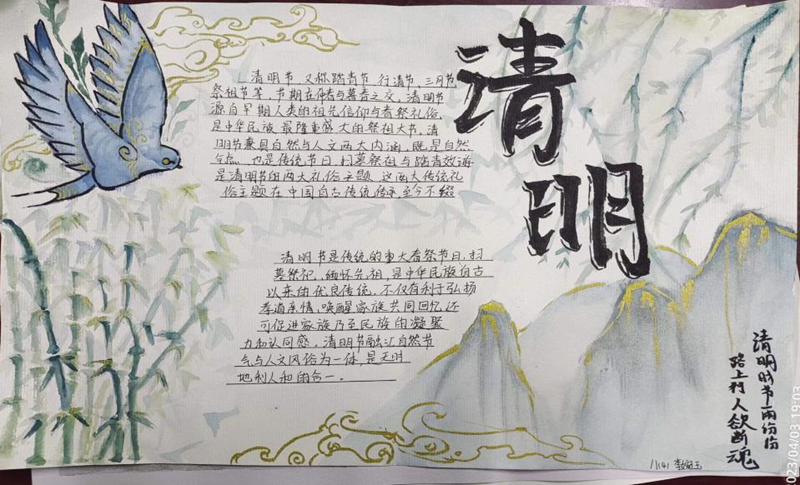 清明
清明节，又称踏青节、行清节、三月节、
祭祖节等，节期在仲春与暮春之交。清明节
源自早期人类的祖先信仰与春祭礼俗，
是中华民族最隆重盛大的祭祖大节。清
明节兼具自然与人文两大内涵，既是自然
节气，也是传统节日，扫墓祭祖与踏青郊游
是清明节的两大礼俗主题，这两大传统礼
俗主题在中国自古传统传承，至今不辍
清明节是传统的重大春祭节日，扫
墓祭祀、缅怀先祖，是中华民族自古
以来的优良传统，不仅有利于弘扬
孝道亲情，唤醒家族共同回忆，还
可促进家族乃至民族的凝聚
力和认同感。清明节融汇自然节
气与人文风俗为一体，是天时
地利人和的合一。
清明时节雨纷纷
路上行人欲断魂
023/04/03 19:03